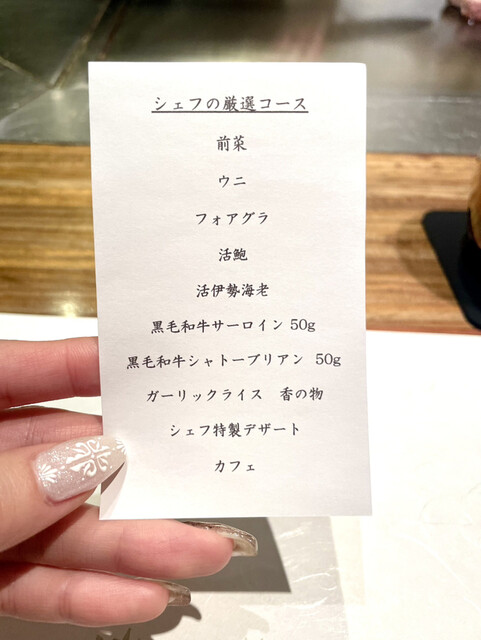 シェフの厳選コース
前菜
ウニ
フォアグラ
活鮑
活伊勢海老
黒毛和牛サーロイン 50g
黒毛和牛シャトーブリアン 50g
ガーリックライス　香の物
シェフ特製デザート
カフェ